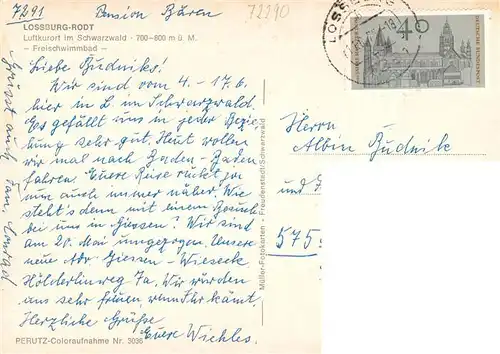 7291 Pension Bären
72290
LOSSBURG-RODT
Luftkurort im Schwarzwald · 700-800 m ü. M.
– Freischwimmbad –
Liebe Budniks!
Wir sind vom 4. - 17.6.
hier in L. im Schwarzwald.
Es gefällt uns in jeder Bezie-
hung sehr gut. Heut wollen
wir mal nach Baden-Baden
fahren. Eure Reise rückt ja
nun auch immer näher. Wie
steht's denn mit einem Besuch
bei uns in Giessen? Wir sind
am 20. Mai umgezogen. Unsere
neue Adr. Giessen - Wieseck
Hölderlinweg 7a. Wir würden
uns sehr freuen, wenn Ihr kämt.
Herzliche Grüße
Eure Wiehles.
Grüsst auch
Conrad
PERUTZ-Coloraufnahme Nr. 3036
Müller-Fotokarten - Freudenstadt/Schwarzwald
LOSS
40
DEUTSCHE BUNDESPOST
Herrn
Albin Budnik
und
575